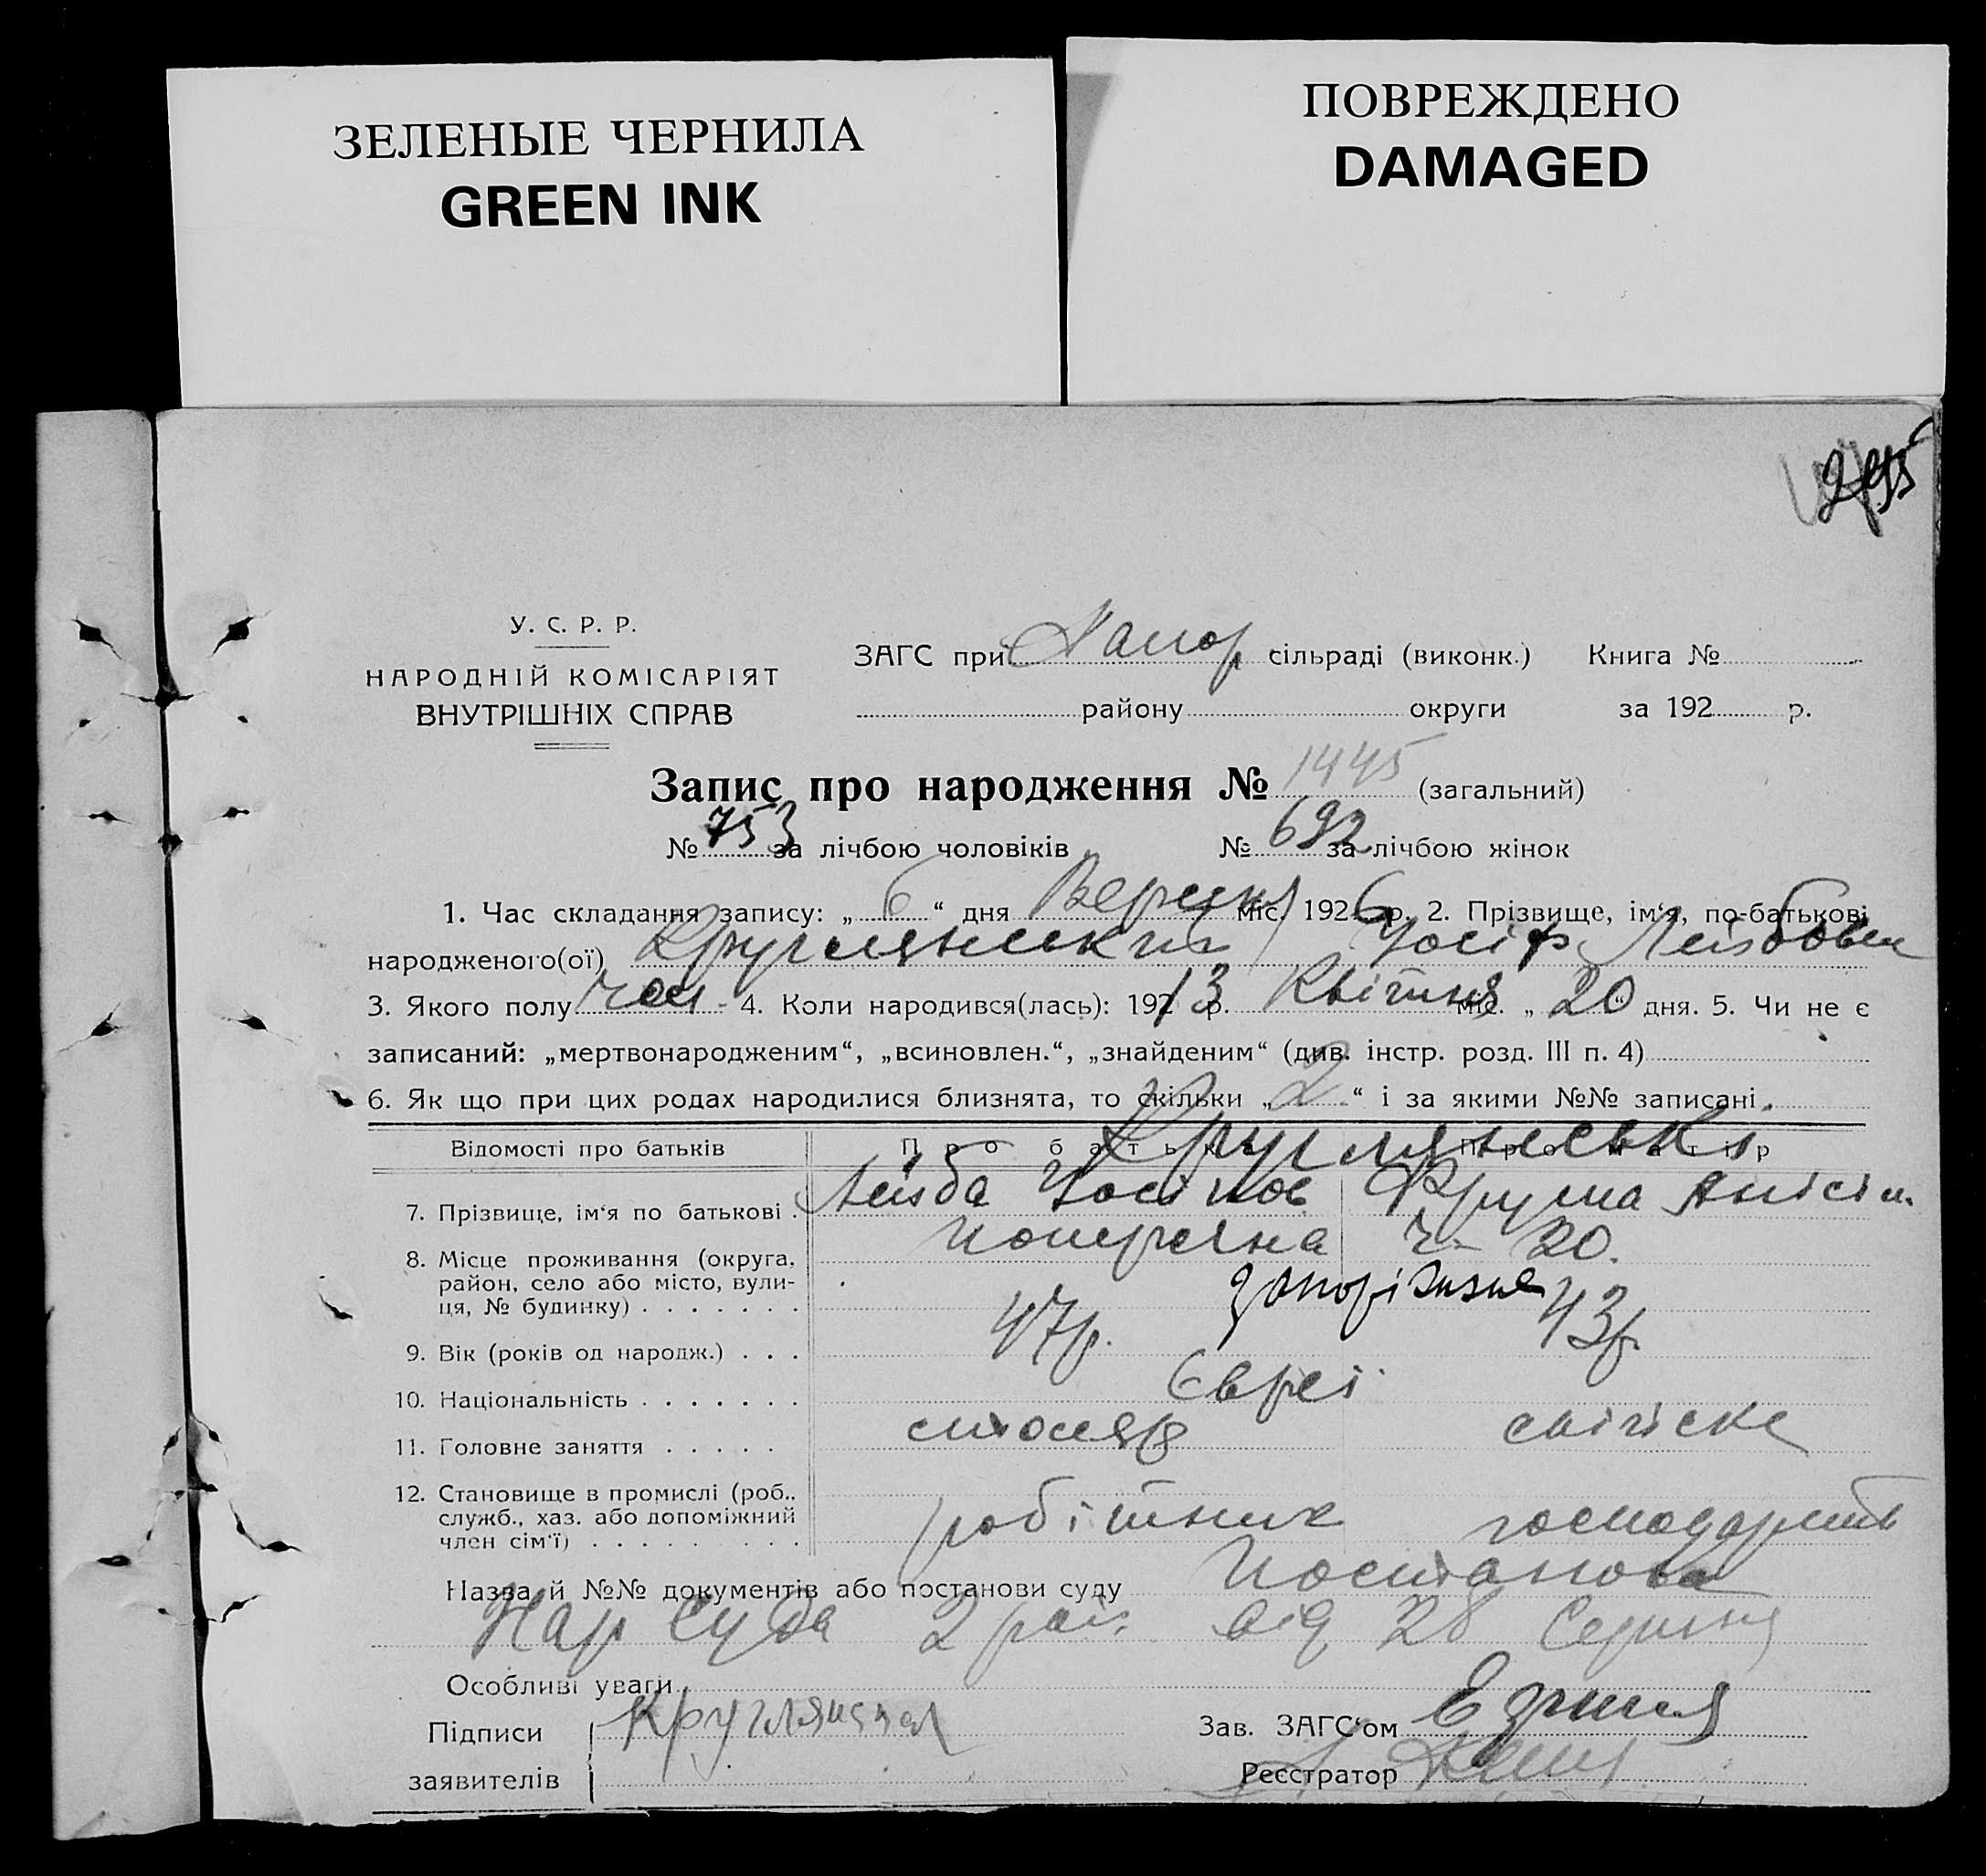 ЗЕЛЕНЫЕ ЧЕРНИЛА
GREEN INK
ПОВРЕЖДЕНО
DAMAGED
У. С. Р. Р.
НАРОДНІЙ КОМІСАРІЯТ
ВНУТРІШНІХ СПРАВ
ЗАГС при Запор сільраді (виконк.) Книга №
району округи за 192 р.
Запис про народження № 1445 (загальний)
№ 753 за лічбою чоловіків № 692 за лічбою жінок
1. Час складання запису: „ 6 “ дня Вересня міс. 1926 р. 2. Прізвище, ім‘я, по-батькові
народженого(ої) Круглянський Йосіф Лейбович
3. Якого полу чол 4. Коли народився(лась): 1913 р. Квітня міс. „ 20 “ дня. 5. Чи не є
записаний: „мертвонародженим“, „всиновлен.“, „знайденим“ (див. інстр. розд. III п. 4)
6. Як що при цих родах народилися близнята, то скільки „ 2 “ і за якими №№ записані
Відомості про батьків Про батька Про матір
Круглянські
7. Прізвище, ім‘я по батькові . Лейба Йосіпов Фрума Анісім
8. Місце проживання (округа, район, село або місто, вулиця, № будинку) . . . . . . . Поперечна ч- 20.
Запоріжжя
9. Вік (років од народж.) . . . 47р. 43р.
10. Національність . . . . . . . Євреї
11. Головне заняття . . . . . столяр
12. Становище в промислі (роб., служб., хаз. або допоміжний член сім‘ї) . . . . . . . . . робітник господарить
Назва й №№ документів або постанови суду Постанова
Нар Суда 2 рай. від 28 Серпня
Особливі уваги
Підписи Зав. ЗАГС‘ом
заявителів Реєстратор